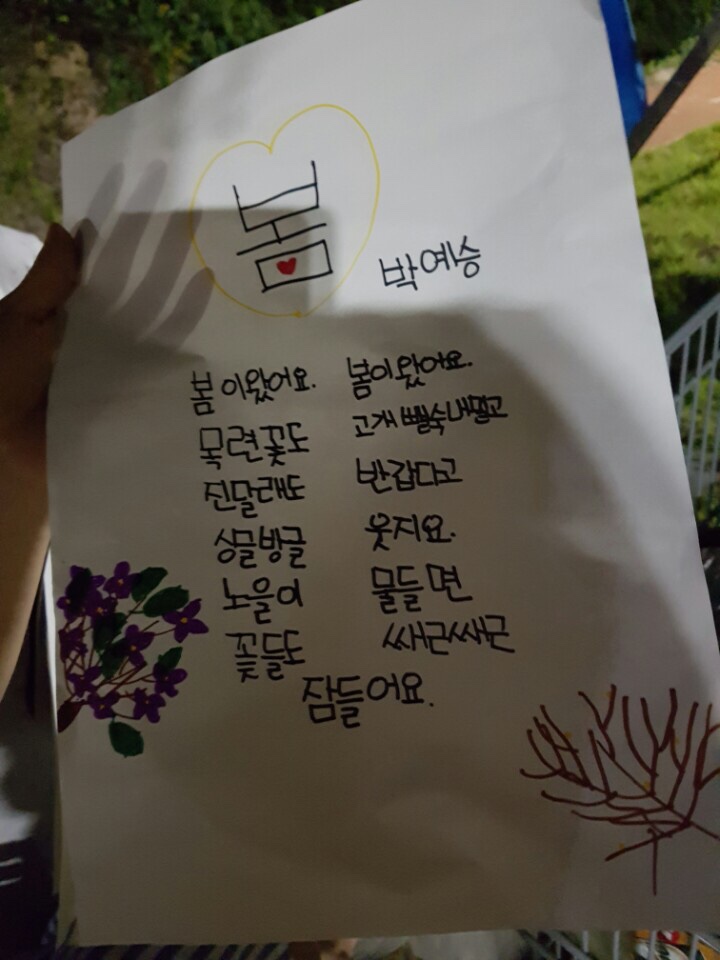 봄
박예승
봄이왔어요. 봄이왔어요.
목련꽃도 고개삘쑥내밀고
진달래도 반갑다고
싱글벙글 웃지요.
노을이 물들면
꽃들도 쌔근쌔근
잠들어요.